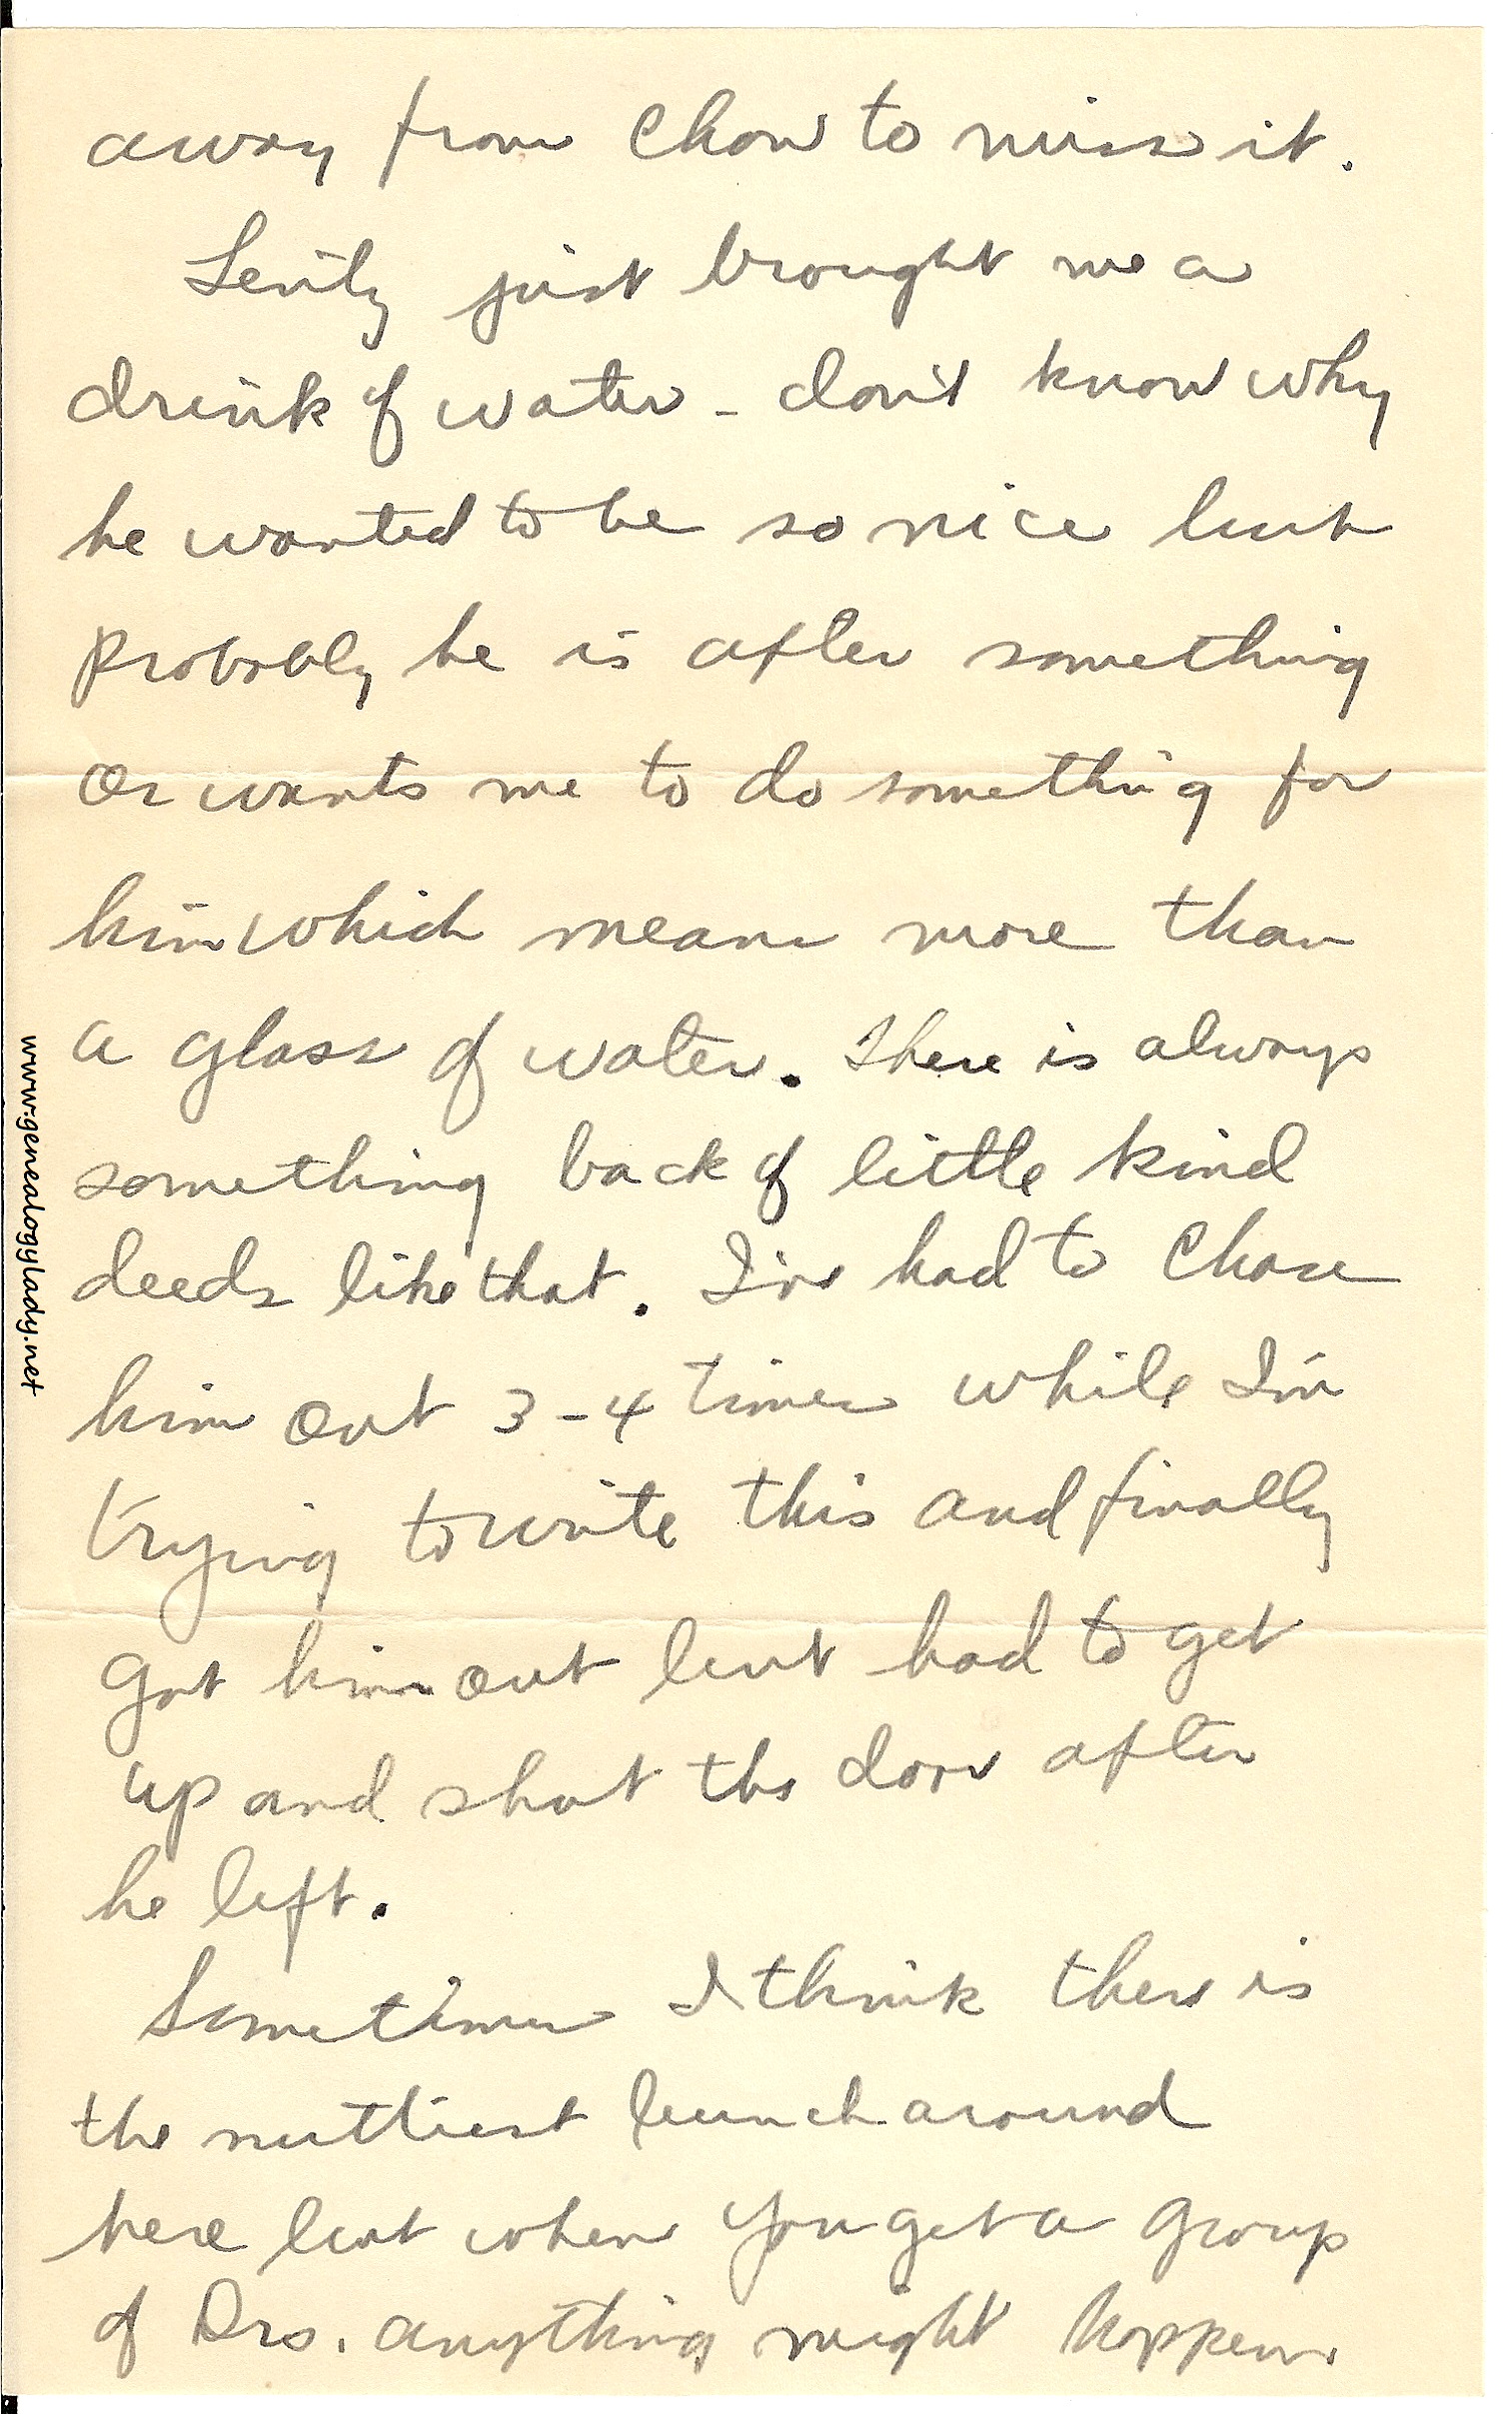 away from chow to miss it.
Senty just brought me a
drink of water - don't know why
he wanted to be so nice but
probably he is after something
or wants me to do something for
him which means more than
a glass of water. There is always
something back of little kind
deeds like that. I've had to chase
him out 3-4 times while I'm
trying to write this and finally
got him out but had to get
up and shut the door after
he left.
Sometimes I think there is
the nuttiest bunch around
here but when you get a group
of Drs. anything might happen
www.genealogylady.net